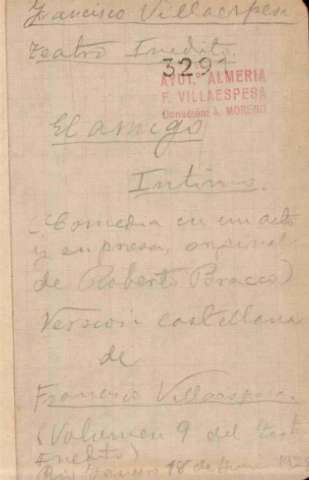 Francisco Villaespesa
Teatro Inedito.
3291
AYUT.º ALMERIA
F. VILLAESPESA
Donación A. MORENO
El amigo
Intimo.
(Comedia en un acto
y en prosa, original
de Roberto Bracco)
Version castellana
de
Francisco Villaespesa.
(Volumen 9 del
Inedito)
18 de